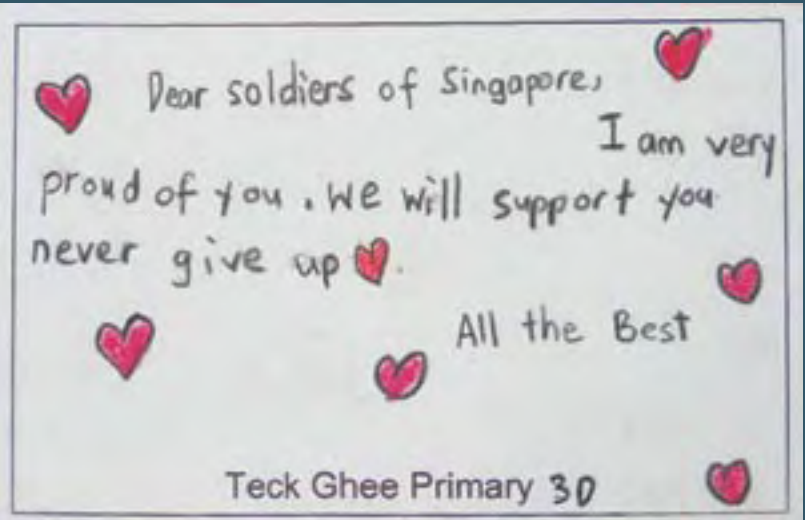 Dear soldiers of Singapore,
I am very
proud of you. We will support you
never give up.
All the Best
Teck Ghee Primary 3D